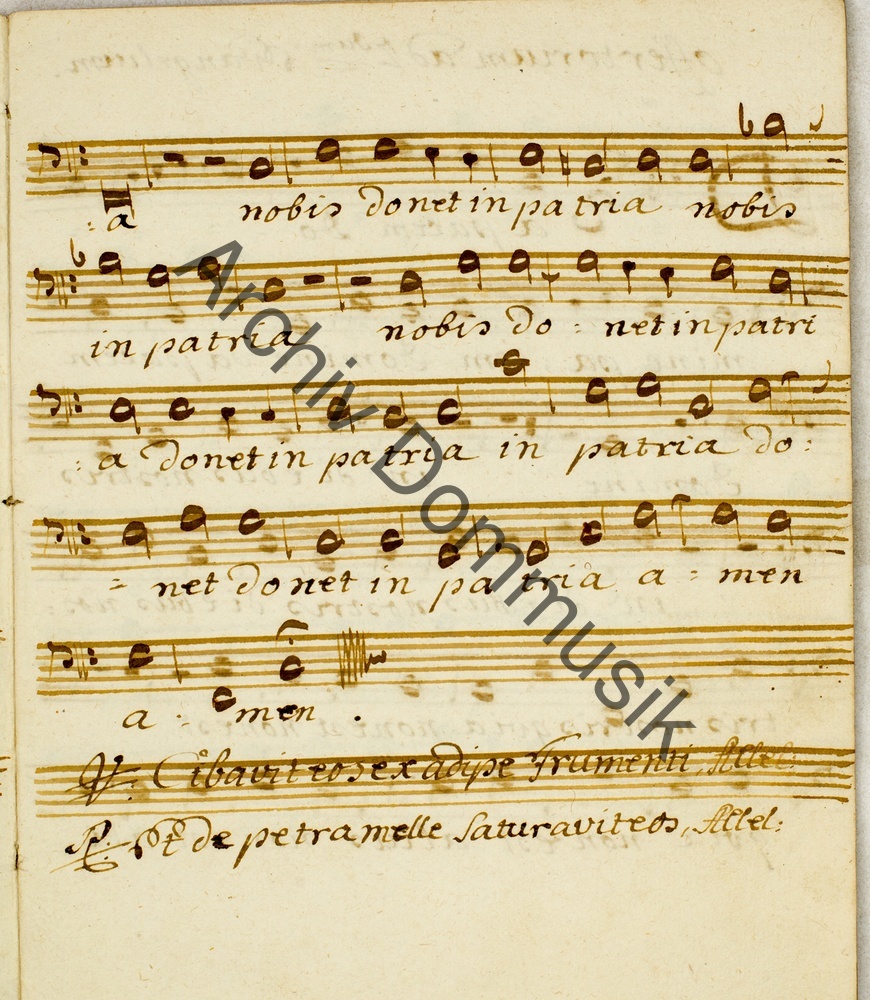 : a nobis donet in patria nobis
in patria nobis do : net in patri
: a donet in patria in patria do :
= net donet in pa tria a = men
a : men .
℣. Cibavit eos ex adipe Frumenti, Allel:
℟. Et de petra melle Saturavit eos, Allel:
Archiv Dommusik